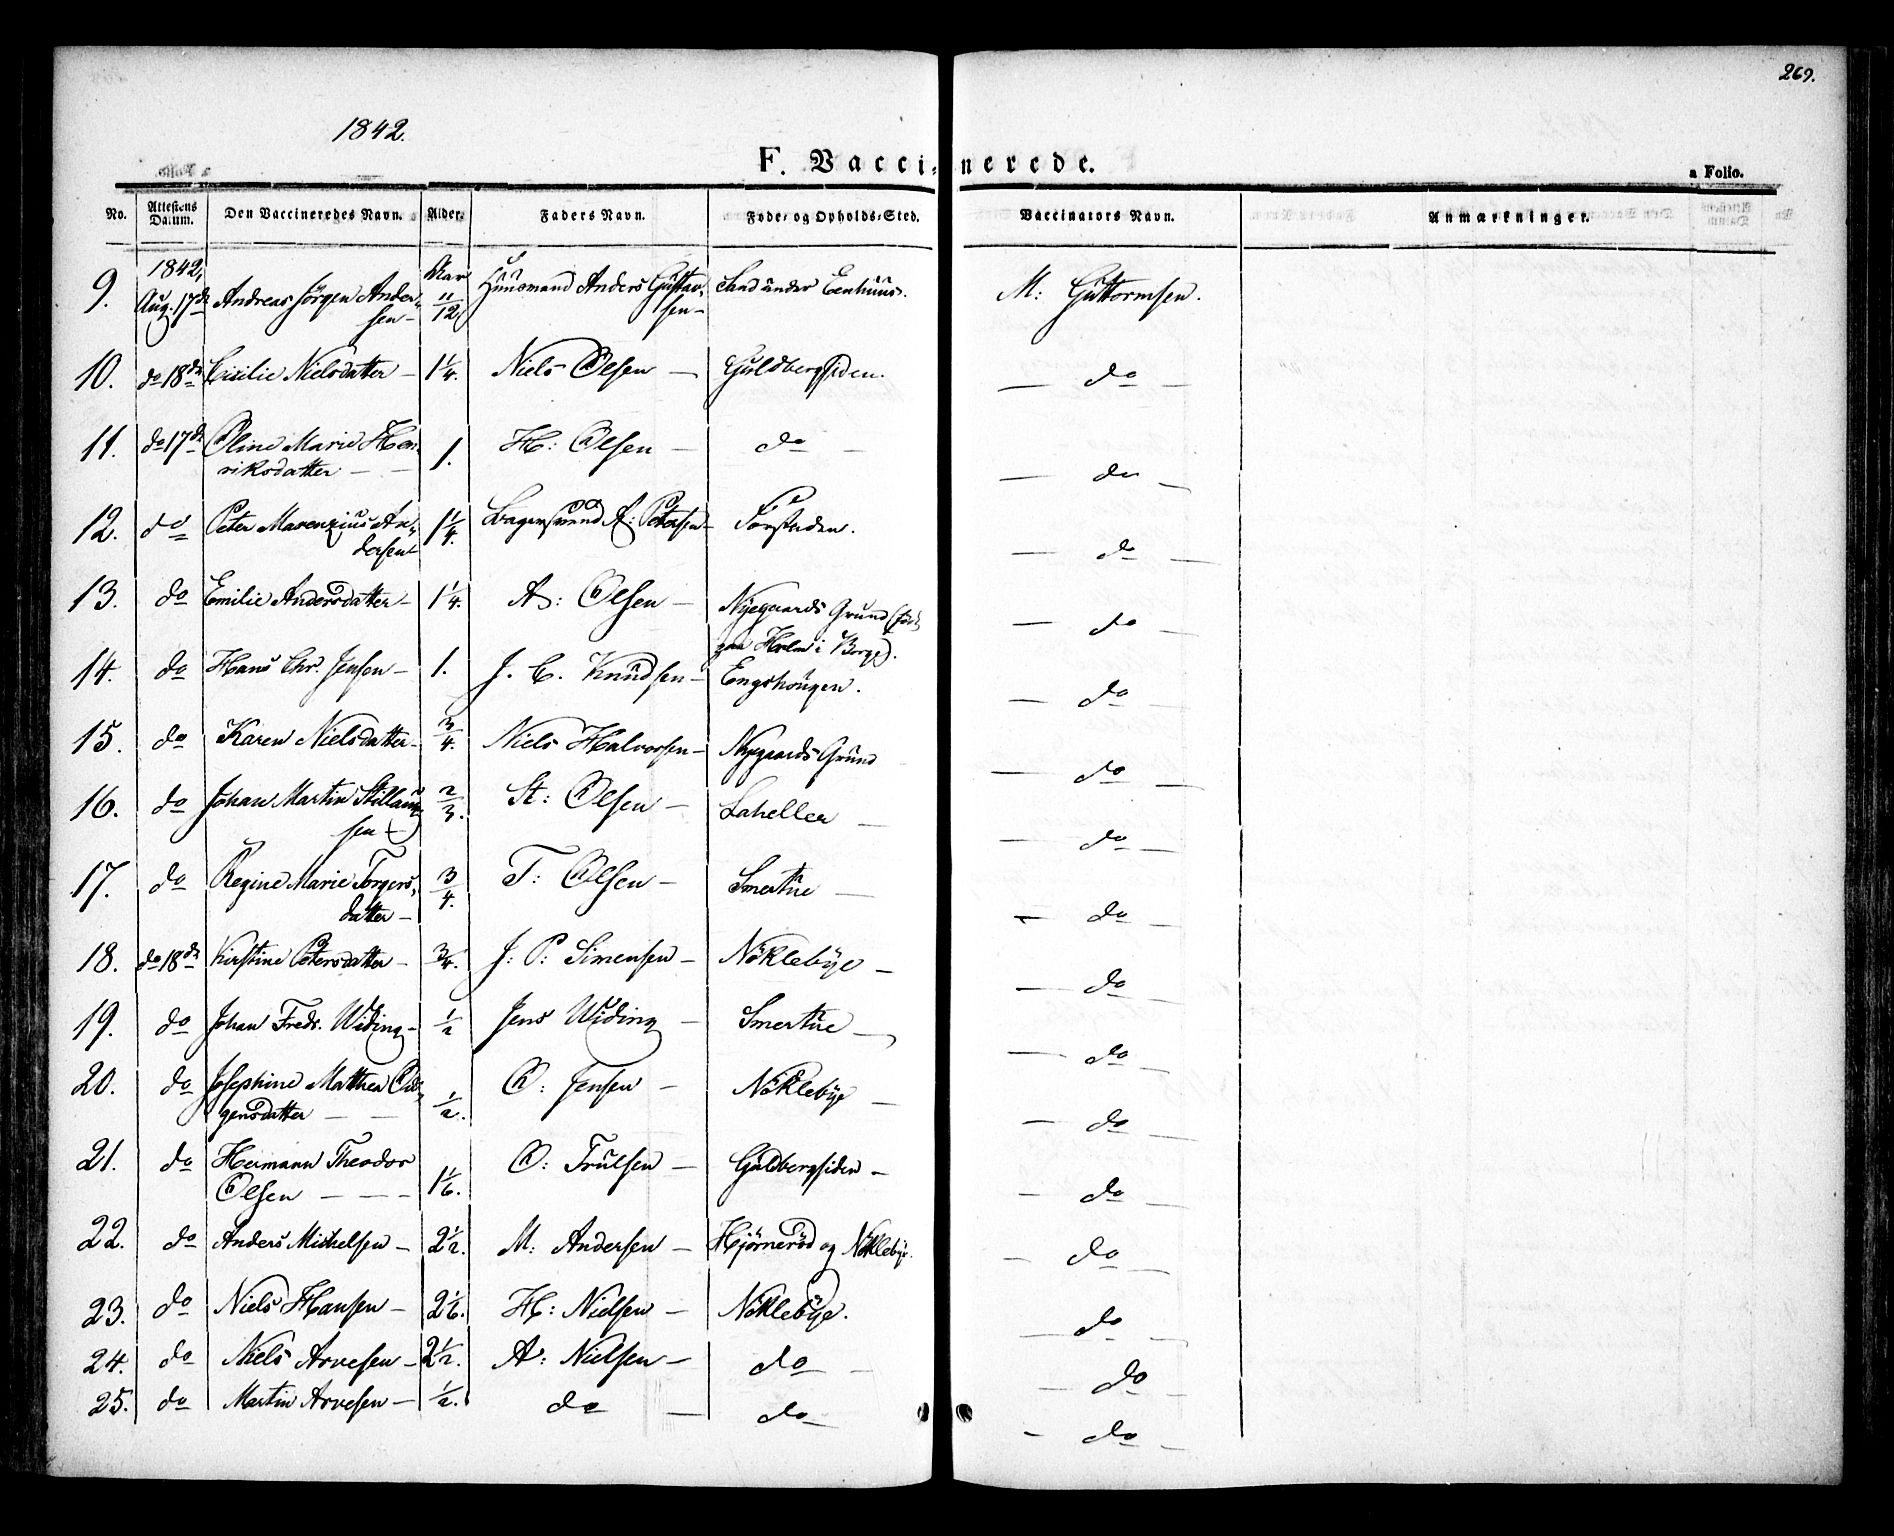 269.
1842.
F. Vaccinerede.
a Folio.
No. Attestens Datum. Den Vaccineredes Navn. Alder. Faders Navn. Føde- og Opholds-Sted. Vaccinators Navn. Anmærkninger.
9. 1842, Aug. 17de Andreas Jörgen Andersen – Aar 11/12 Huusmand Anders Gustavsen – Sand under Eenhuus. M: Guttormsen.
10. do 18de Cicilie Nielsdatter – 1 1/4. Niels Olsen – Guldbergsiden. — do —
11. do 17de Oline Marie Henriksdatter — — 1. H: Olsen – do – — do —
12. do Peter Marenzius Andersen 1 1/4. A: Petersen – Forstaden. — do —
13. do Emilie Andersdatter – 1 1/4. A: Olsen – Nyegaards Grund (född paa Holm i Borge). — do —
14. do Hans Chr. Jensen – 1. J. C. Knudsen – Engshougen. — do —
15. do Karen Nielsdatter – 3/4. Niels Halvorsen – Nyegaards Grund — do —
16. do Johan Martin Stillaugsen – 2/3. St: Olsen – Laheller — — do —
17. do Regine Marie Torgersdatter – 3/4. T: Olsen – Smertue — — do —
18. do 18de Kirstine Petersdatter – 3/4. J: P: Simensen – Nöklebÿe – — do —
19. do Johan Fredr. Widing – 1/2 Jens Widing – Smertue — — do —
20. do Josephine Mathea — — 1/2. O: Jensen – Nöklebÿe — — do —
21. do Hermann Theodor Olsen — — — 1 1/6. O: Trulsen – Guldbergsiden – — do —
22. do Anders Michelsen – 2 1/2. M: Andersen – Hjörneröd og Nöklebÿe. — do —
23. do Niels Hansen – 2 1/6. H: Nielsen – Nöklebÿe. — do —
24. do Niels Arvesen – 2 1/2. A: Nielsen – do — — do —
25. do Martin Arvesen – 1/2. do — do — – do –